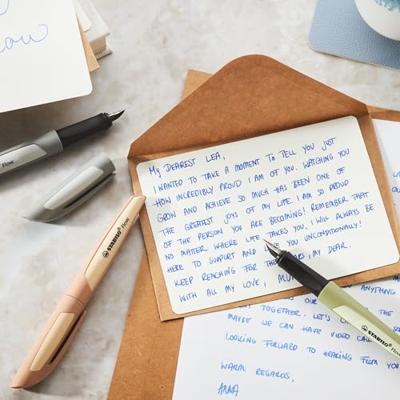 ow
Flow
My DEAREST LEA,
I WANTED TO TAKE A MOMENT TO TELL YOU JUST
HOW INCREDIBLY PROUD I AM OF YOU. WATCHING YOU
GROW AND ACHIEVE SO MUCH HAS BEEN ONE OF
THE GREATEST JOYS OF MY LIFE. I AM SO PROUD
OF THE PERSON YOU ARE BECOMING! REMEMBER THAT
NO MATTER WHERE LIFE TAKES YOU, I WILL ALWAYS BE
HERE TO SUPPORT AND YOU UNCONDITIONALLY!
KEEP REACHING FOR THE MY DEAR.
WITH ALL MY LOVE,
STABILO Flow
STABILO Flow
ANYTHING
TOGETHER. LET'S
MAYBE WE CAN HAVE VIDEO
LOOKING FORWARD TO HEARING FROM YOU
WARM REGARDS,
ANNA